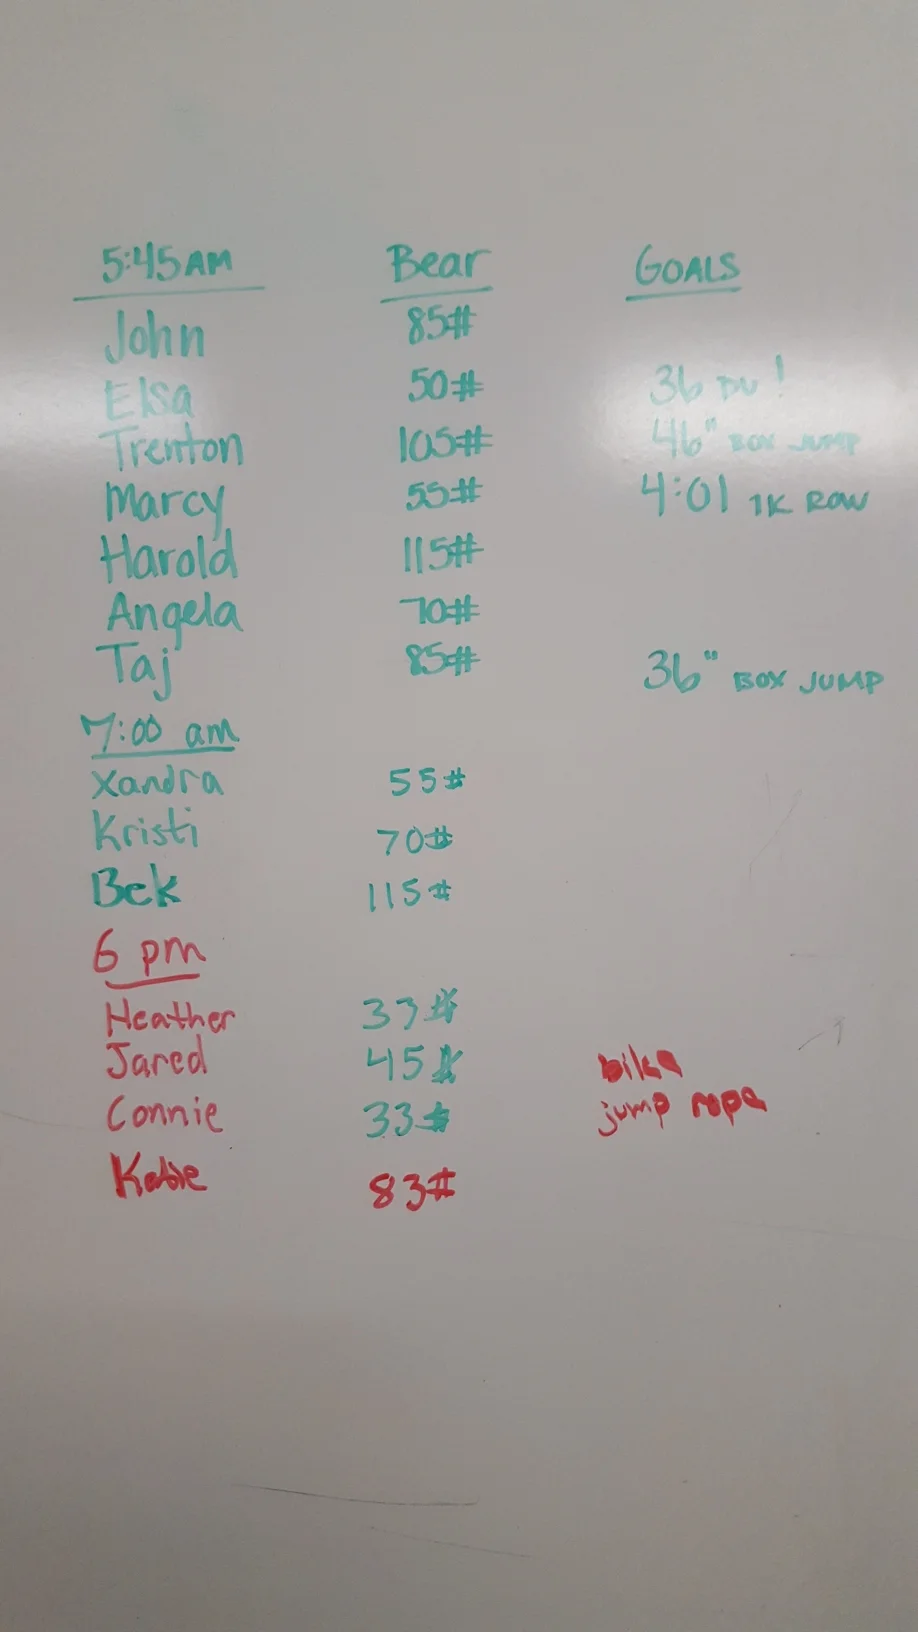 5:45AM Bear GOALS
John 85#
Elsa 50# 36 DU!
Trenton 105# 46" BOX JUMP
Marcy 55# 4:01 1K ROW
Harold 115#
Angela 70#
Taj 85# 36" BOX JUMP
7:00 am
Xandra 55#
Kristi 70#
Bek 115#
6 pm
Heather 33#
Jared 45# bike
Connie 33# jump rope
Katie 83#